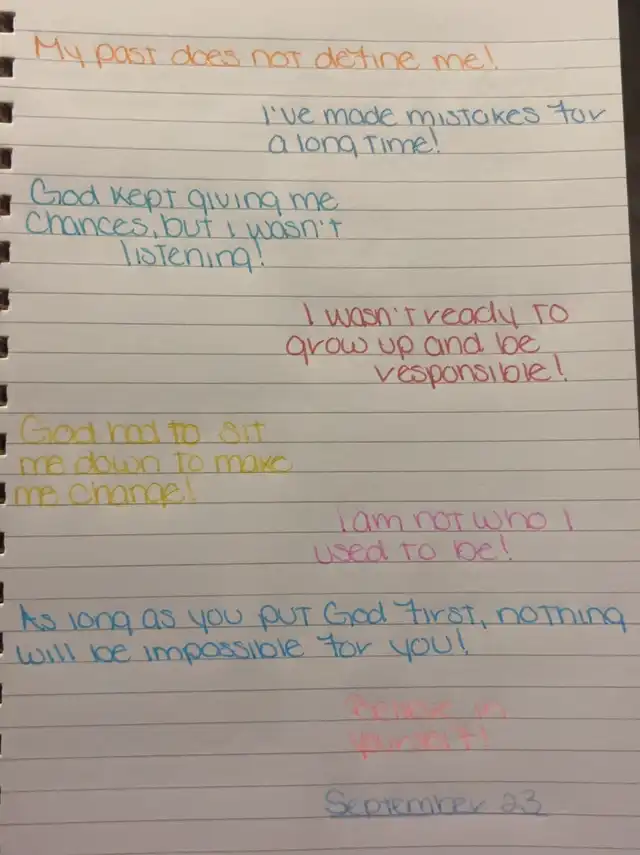 My past does not define me!
I've made mistakes for
a long time!
God kept giving me
chances, but I wasn't
listening!
I wasn't ready to
grow up and be
responsible!
God had to sit
me down to make
me change!
I am not who I
used to be!
As long as you put God first, nothing
will be impossible for you!
Believe in
yourself!
September 23